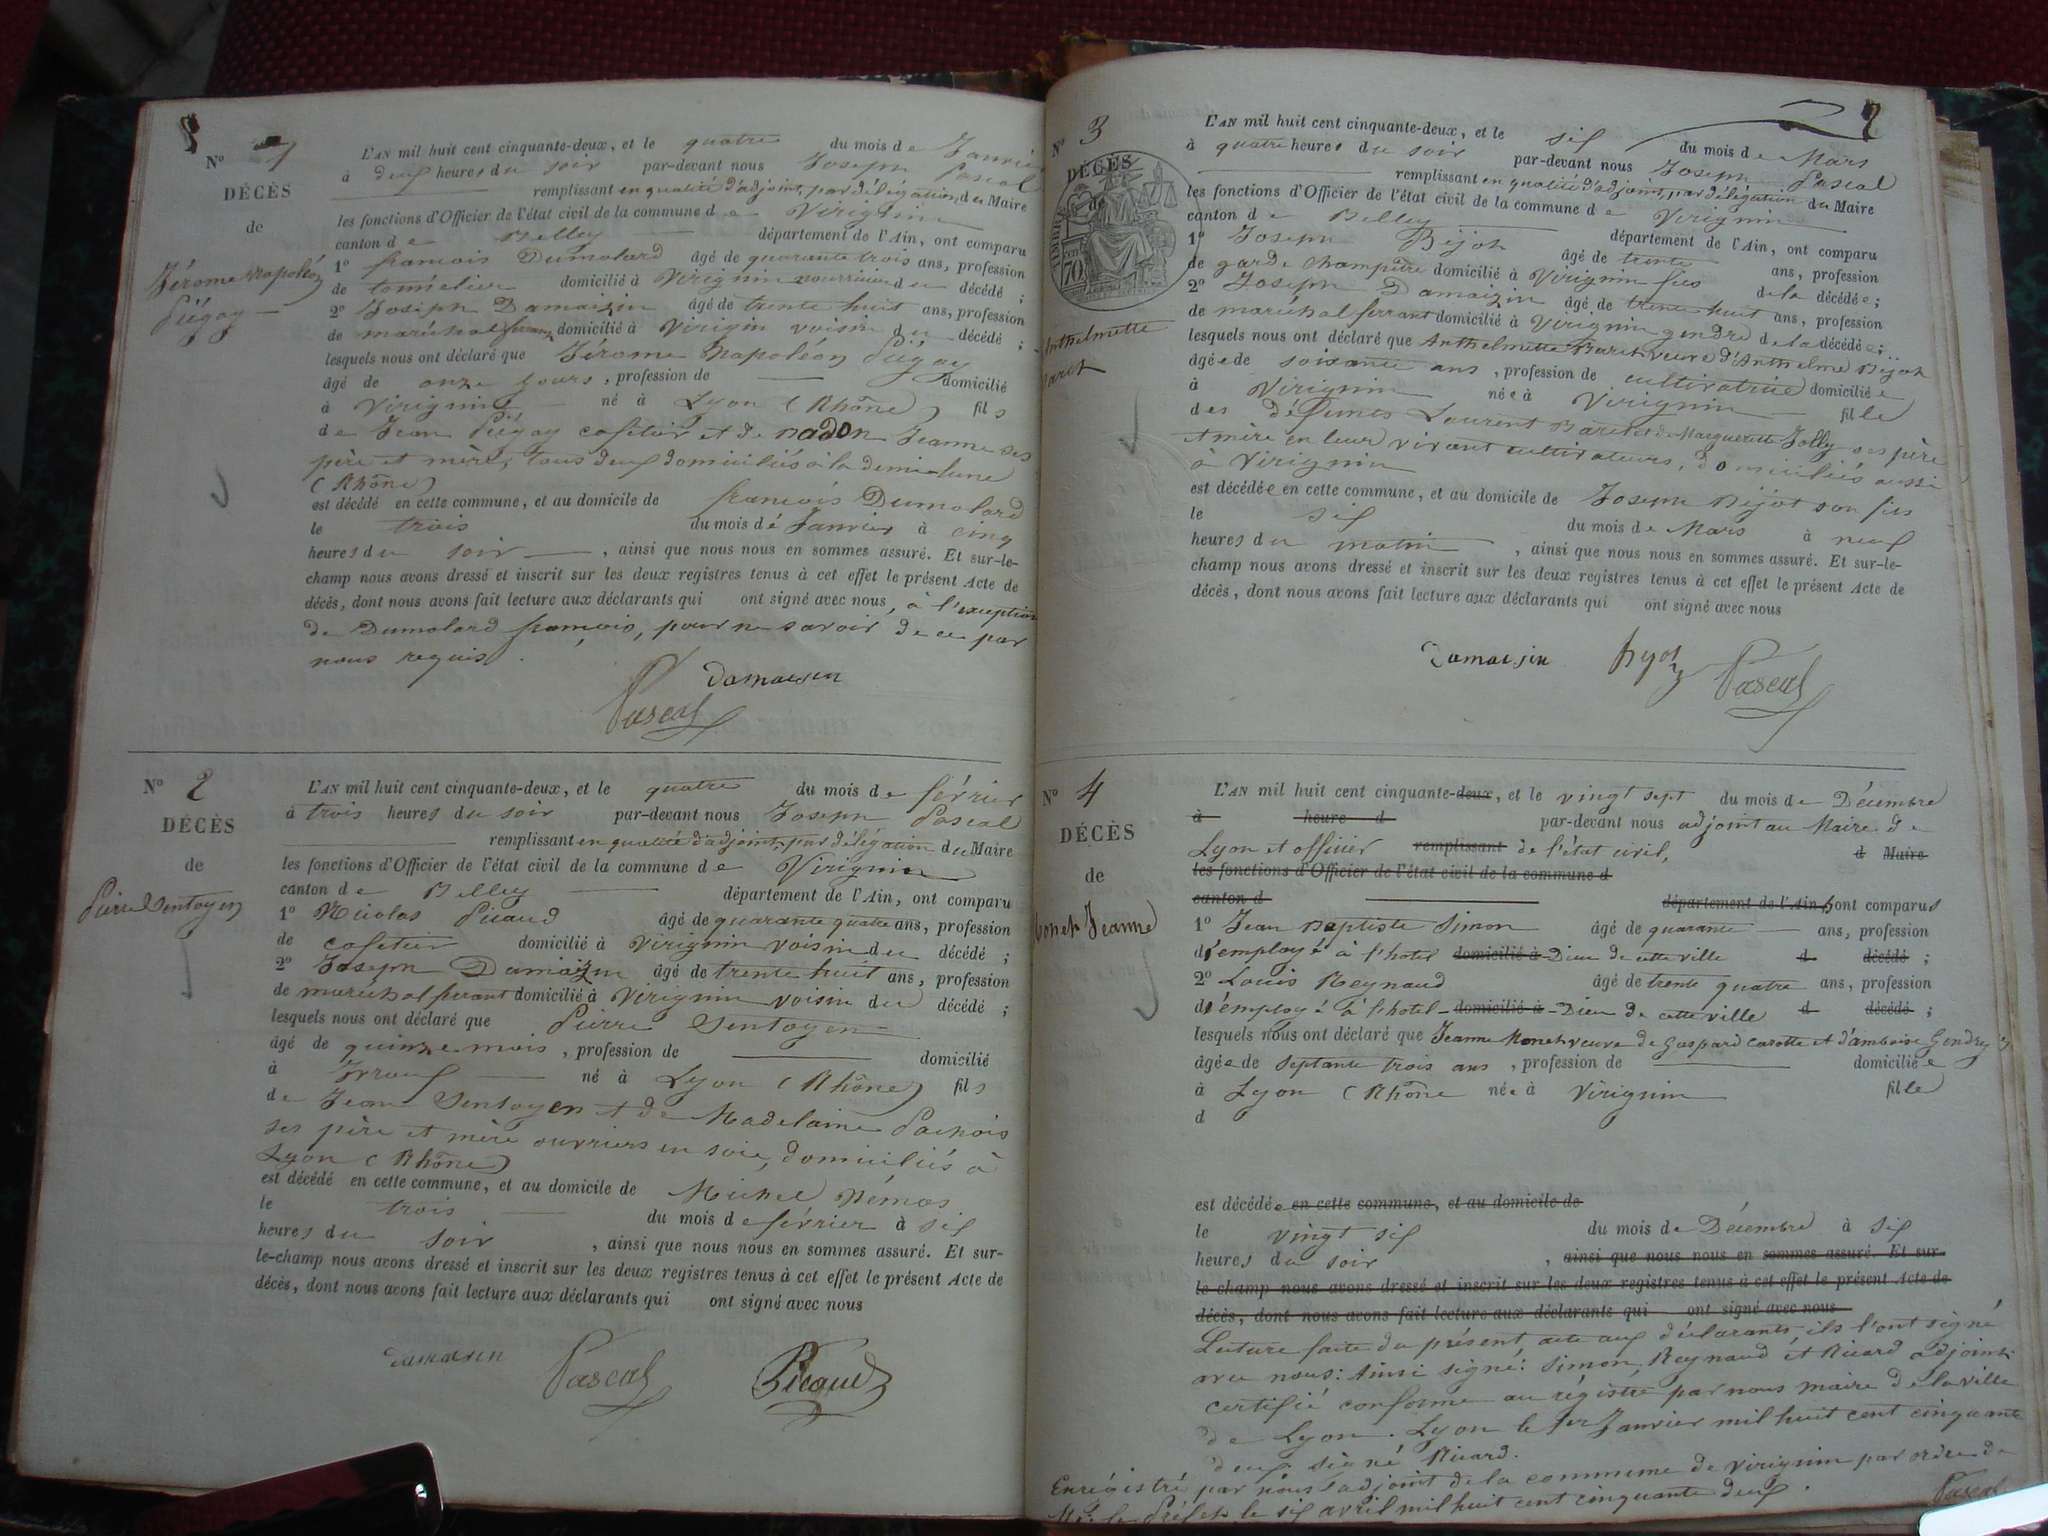 N° 1
DÉCÈS
de
Jérome Napoléon
Pégay
L'AN mil huit cent cinquante-deux, et le quatre du mois de Janvier
à deux heures du soir par-devant nous Joseph Pascal
remplissant en qualité d'adjoint, par délégation du Maire
les fonctions d'Officier de l'état civil de la commune de Virignin
canton de Belley département de l'Ain, ont comparu
1° francois Dumolard âgé de quarante trois ans, profession
de domicilié à Virignin nourricier du décédé ;
2° Joseph Damaizin âgé de trente huit ans, profession
de maréchal ferrant domicilié à Virigin voisin du décédé ;
lesquels nous ont déclaré que Jérome Napoléon Pégay
âgé de onze jours, profession de domicilié
à Virignin né à Lyon (Rhône) fils
de Jean Pégay cafetier et de Nadon Jeanne ses
père et mère, tous deux domiciliés à la demi-lune
(Rhône)
est décédé en cette commune, et au domicile de francois Dumolard
le trois du mois de Janvier à cinq
heures du soir, ainsi que nous nous en sommes assuré. Et sur-le-
champ nous avons dressé et inscrit sur les deux registres tenus à cet effet le présent Acte de
décès, dont nous avons fait lecture aux déclarants qui ont signé avec nous, à l'exception
de Dumolard francois, pour ne savoir de ce par
nous requis.
damaisin
Pascal
N° 2
DÉCÈS
de
Pierre Sentoyen
L'AN mil huit cent cinquante-deux, et le quatre du mois de février
à trois heures du soir par-devant nous Joseph Pascal
remplissant en qualité d'adjoint, par délégation du Maire
les fonctions d'Officier de l'état civil de la commune de Virignin
canton de Belley département de l'Ain, ont comparu
1° Nicolas Picaud âgé de quarante quatre ans, profession
de cafetier domicilié à Virignin voisin du décédé ;
2° Joseph Damaizin âgé de trente huit ans, profession
de maréchal ferrant domicilié à Virignin voisin du décédé ;
lesquels nous ont déclaré que Pierre Sentoyen
âgé de quinze mois, profession de domicilié
à né à Lyon (Rhône) fils
de Jean Sentoyen et de Madelaine
ses père et mère ouvriers en soie, domiciliés à
Lyon (Rhône)
est décédé en cette commune, et au domicile de Michel Némos
le trois du mois de février à six
heures du soir, ainsi que nous nous en sommes assuré. Et sur-
le-champ nous avons dressé et inscrit sur les deux registres tenus à cet effet le présent Acte de
décès, dont nous avons fait lecture aux déclarants qui ont signé avec nous
damaisin Pascal Picaud
N° 3
DÉCÈS
de
Anthelmette
Baret
70
L'AN mil huit cent cinquante-deux, et le six du mois de Mars
à quatre heures du soir par-devant nous Joseph Pascal
remplissant en qualité d'adjoint, par délégation du Maire
les fonctions d'Officier de l'état civil de la commune de Virignin
canton de Belley département de l'Ain, ont comparu
1° Joseph Bijot âgé de trente ans, profession
de garde champêtre domicilié à Virignin fils de la décédée ;
2° Joseph Damaizin âgé de trente huit ans, profession
de maréchal ferrant domicilié à Virignin gendre de la décédée ;
lesquels nous ont déclaré que Anthelmette Baret veuve d'Anthelme Bijot
âgée de soixante ans, profession de cultivatrice domiciliée
à Virignin née à Virignin fille
des défunts Laurent Baret et de Marguerite Jolly ses père
et mère en leur vivant cultivateurs, domiciliés aussi
à Virignin
est décédée en cette commune, et au domicile de Joseph Bijot son fils
le six du mois de Mars à neuf
heures du matin, ainsi que nous nous en sommes assuré. Et sur-le-
champ nous avons dressé et inscrit sur les deux registres tenus à cet effet le présent Acte de
décès, dont nous avons fait lecture aux déclarants qui ont signé avec nous
damaisin bijot Pascal
N° 4
DÉCÈS
de
Monet Jeanne
L'AN mil huit cent cinquante-deux, et le vingt sept du mois de Décembre
à heure d par-devant nous adjoint au Maire de
Lyon et officier remplissant de l'état civil, d Maire
les fonctions d'Officier de l'état civil de la commune d
canton d département de l'Ain, ont comparus
1° Jean Baptiste Simon âgé de quarante ans, profession
d'employé à l'hotel domicilié à Dieu de cette ville d décédé ;
2° Louis Reynaud âgé de trente quatre ans, profession
d'employé à l'hotel domicilié à Dieu de cette ville d décédé ;
lesquels nous ont déclaré que Jeanne Monet veuve de Gaspard Carotte et d'amboise Gendry
âgée de septante trois ans, profession de domiciliée
à Lyon (Rhône née à Virignin fille
d
est décédée en cette commune, et au domicile de
le vingt six du mois de Décembre à six
heures du soir, ainsi que nous nous en sommes assuré. Et sur-
le-champ nous avons dressé et inscrit sur les deux registres tenus à cet effet le présent Acte de
décès, dont nous avons fait lecture aux déclarants qui ont signé avec nous
Lecture faite du présent acte aux déclarants, ils l'ont signé
avec nous: Ainsi signé: Simon, Reynaud et Ricard adjoint.
certifié conforme au régistre par nous maire de la ville
de Lyon. Lyon le 1er Janvier mil huit cent cinquante
deux signé Ricard.
Enrégistré par nous adjoint de la commune de Virignin par ordre de
Mr. le Préfet le six avril mil huit cent cinquante deux.
Pascal